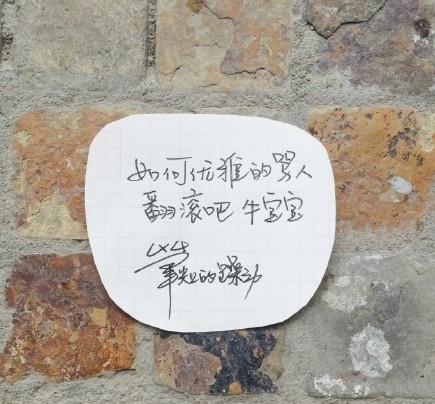 如何优雅的骂人
翻滚吧 牛宝宝
笔尖的躁动